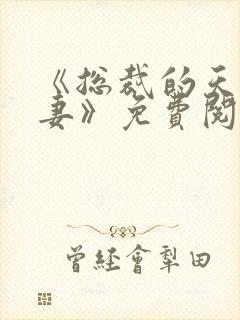 《总裁的天
妻》免费阅
曾经会犁田